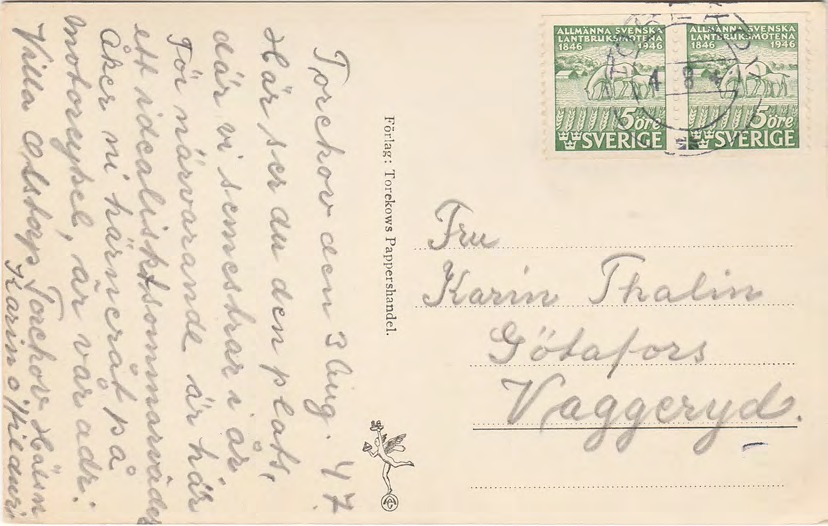 Torekov den 3 Aug. 47
Här ser du den plats,
där vi semestrar i år.
För närvarande är här
ett idealiskt sommarväder
Åker ni häråt på
motorcykel, är vår adr:
Villa Alstorp, Torekov Hälsn
Karin o.
Förlag: Torekows Pappershandel.
ALLMÄNNA SVENSKA
LANTBRUKSMÖTENA
1846 1946
5 öre
SVERIGE
ALLMÄNNA SVENSKA
LANTBRUKSMÖTENA
1846 1946
5 öre
SVERIGE
4 8
Fru
Karin Thalin
Götafors
Vaggeryd.